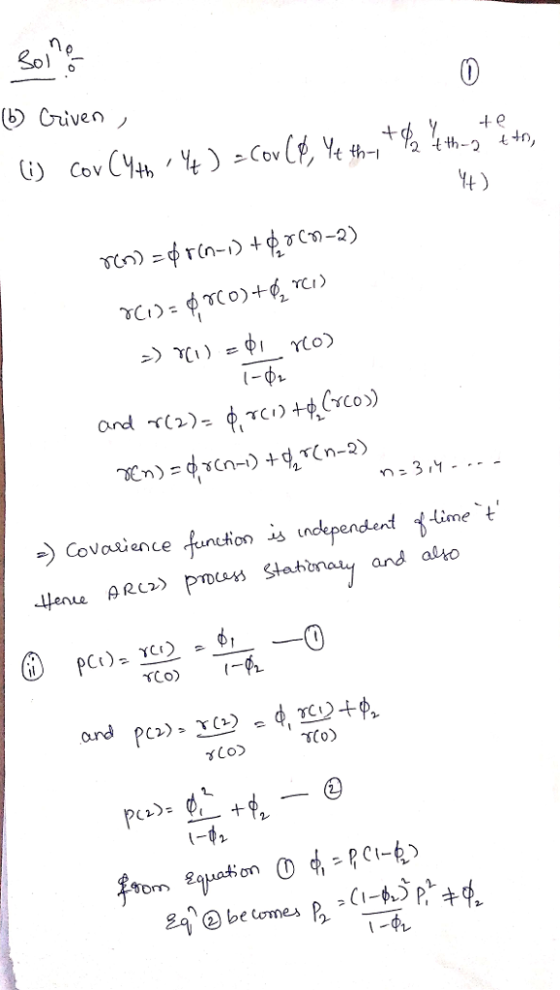 Sol^n :-
①
(b) Given ,
(i) Cov (Y_{t+h} , Y_t) = Cov (ϕ_1 Y_{t+h-1} + ϕ_2 Y_{t+h-2} + e_{t+n},
Y_t)
r(n) = ϕ r(n-1) + ϕ_2 r(n-2)
r(1) = ϕ_1 r(0) + ϕ_2 r(1)
=> r(1) = \frac{ϕ_1}{1-ϕ_2} r(0)
and r(2) = ϕ_1 r(1) + ϕ_2 (r(0))
r(n) = ϕ_1 r(n-1) + ϕ_2 r(n-2) n = 3,4 - - - -
=> Covarience function is independent of time `t'
Hence AR(2) process Stationary and also
(ii) p(1) = \frac{r(1)}{r(0)} = \frac{ϕ_1}{1-ϕ_2} — ①
and p(2) = \frac{r(2)}{r(0)} = ϕ_1 \frac{r(1)}{r(0)} + ϕ_2
p(2) = \frac{ϕ_1^2}{1-ϕ_2} + ϕ_2 — ②
from Equation ① ϕ_1 = P_1 (1-ϕ_2)
Eq^n ② becomes P_2 = \frac{(1-ϕ_2)^2 P_1^2}{1-ϕ_2} + ϕ_2